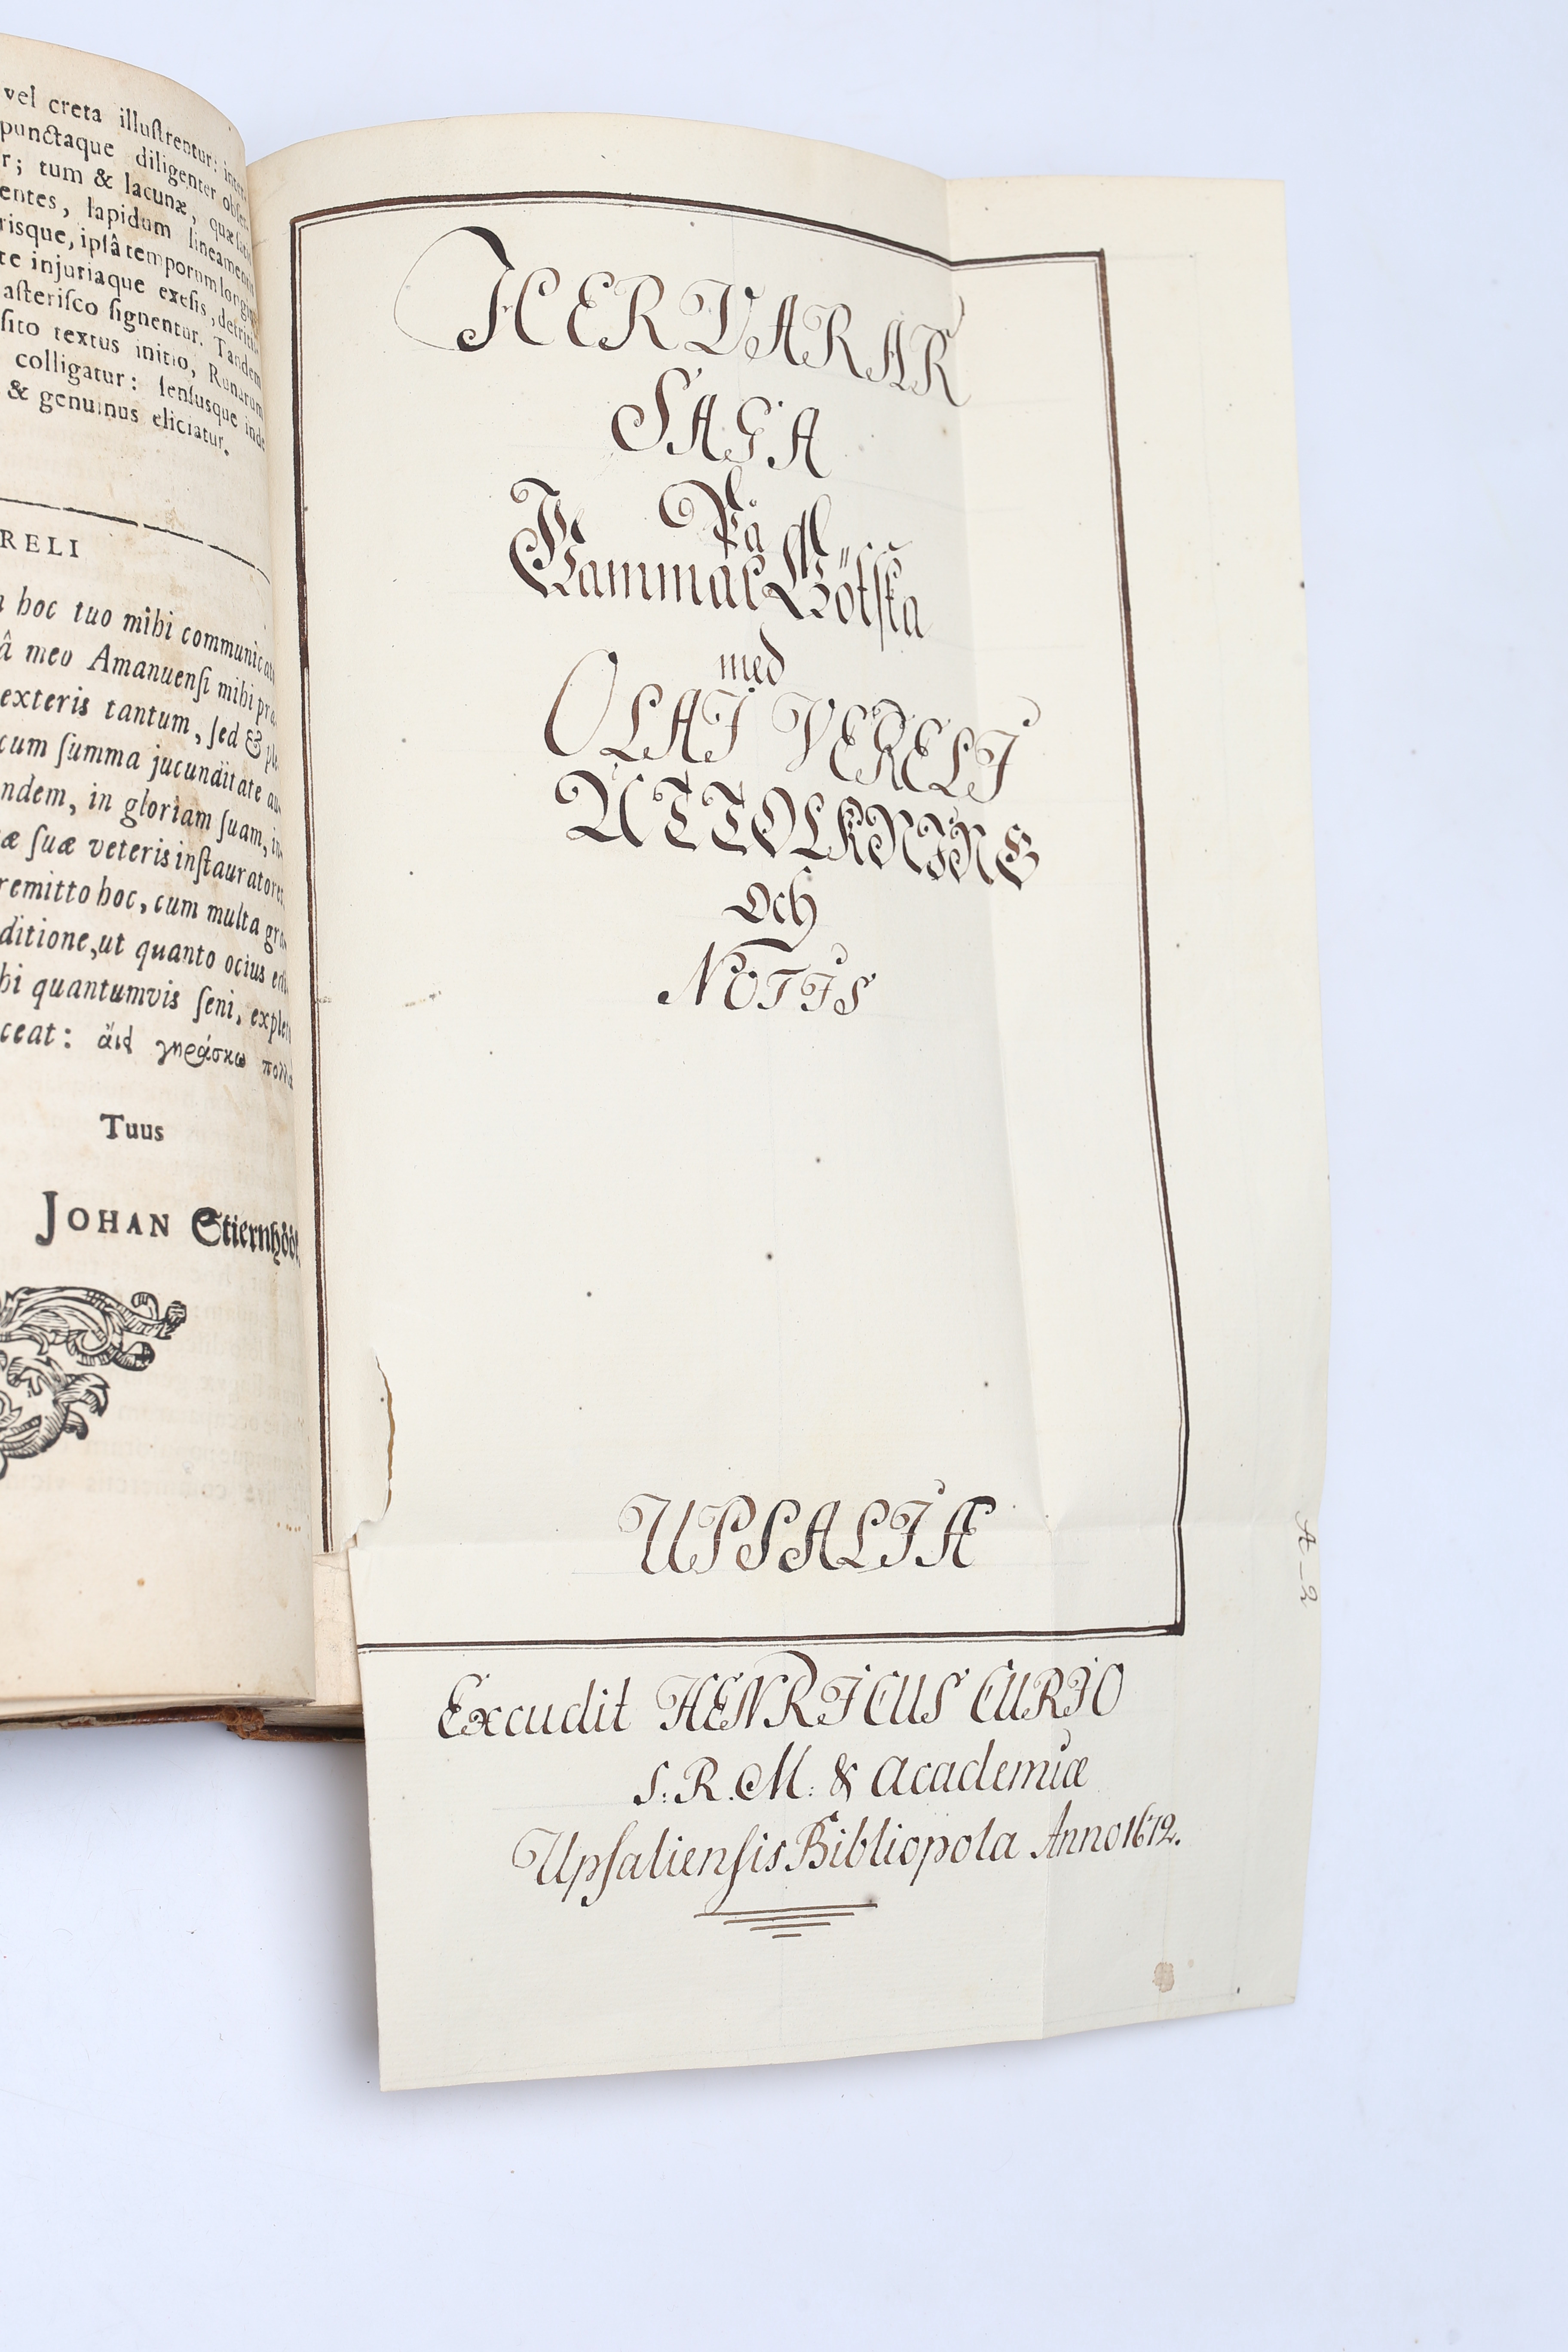 vel creta illuſtrentur: inter
punctaque diligenter obſer
r; tum & lacunæ, quæ
entes, lapidum lineamentis
risque, ipſâ temporum longinq
te injuriaque exeſis, detritis
aſteriſco ſignentur. Tandem
ſito textus initio, Runarum
colligatur: ſenſusque inde
& genuinus eliciatur.
RELI
hoc tuo mihi communicat
â meo Amanuenſi mihi præ
exteris tantum, ſed & pl
cum ſumma jucunditate au
ndem, in gloriam ſuam, in
æ ſuæ veteris inſtauratores
remitto hoc, cum multa gra
ditione, ut quanto ocius edi
bi quantumvis ſeni, explet
ceat: ἀιὲ γηράσκω πολλὰ
Tuus
JOHAN Stiernhöö
HERVARAR
SAGA
På
Gammal Götſka
med
OLAJ VERELJ
UTTOLKNING
Och
NOTIS
UPSALIÆ
Excudit HENRICUS CURIO
S: R. M: & Academiæ
Upſalienſis Bibliopola Anno 1672.
A_2